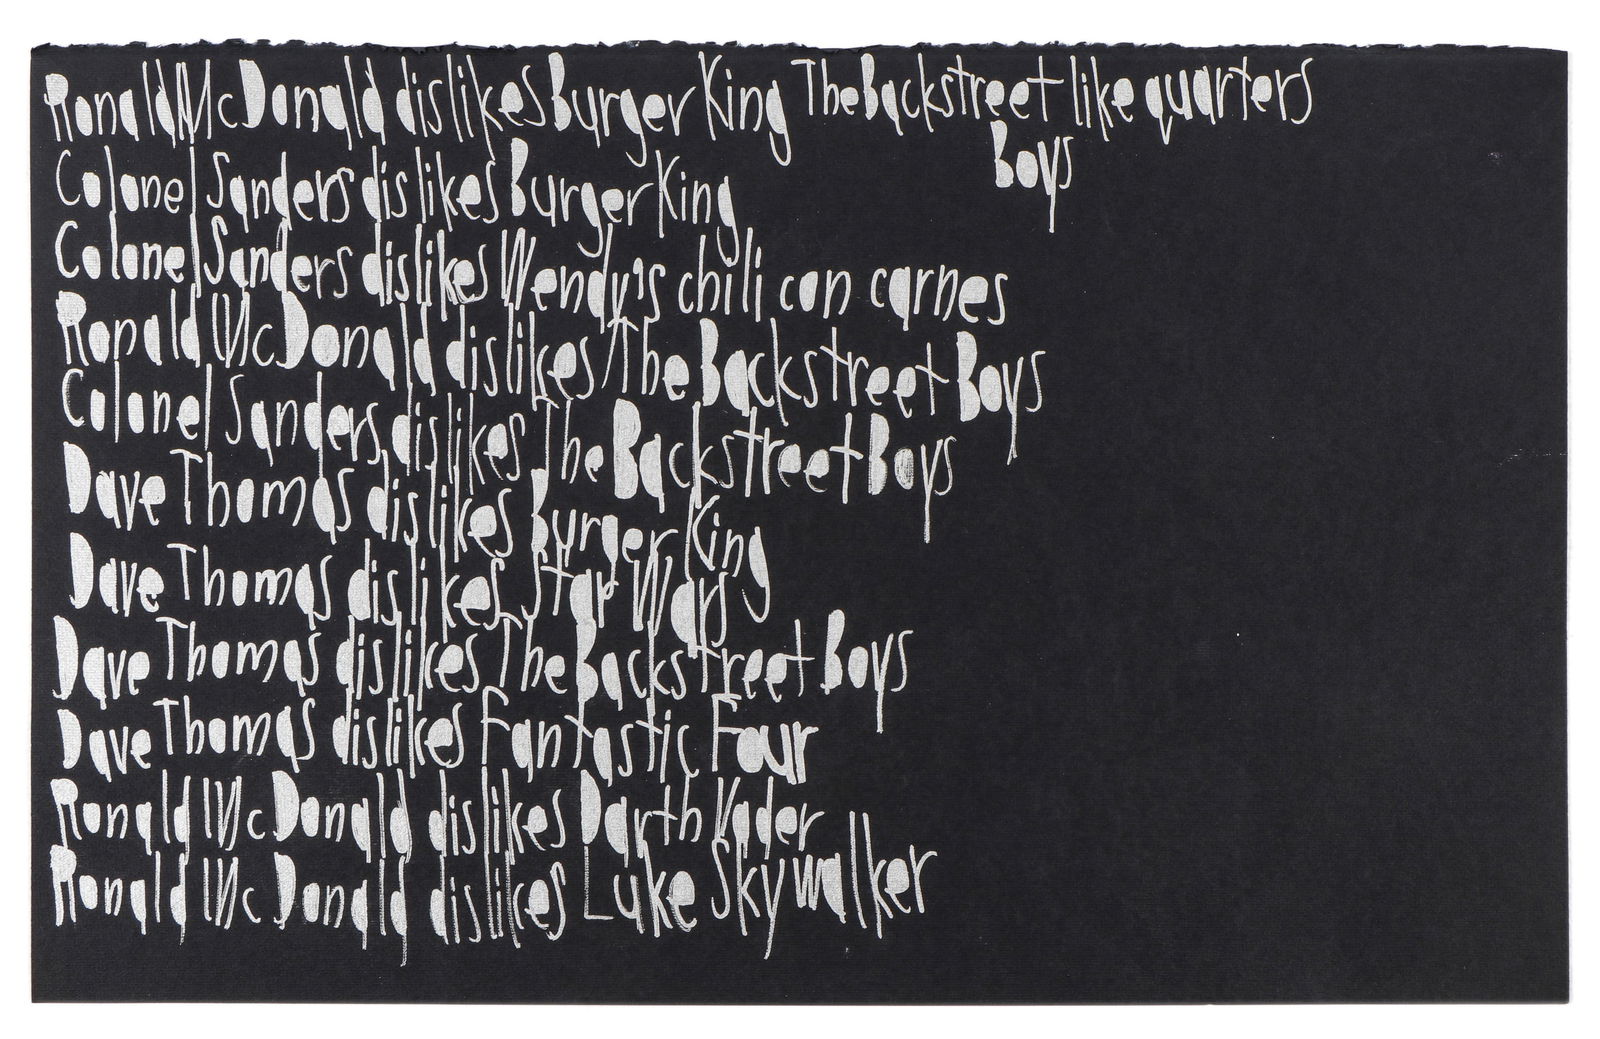 Ronald McDonald dislikes Burger King The Backstreet like quarters
Boys
Colonel Sanders dislikes Burger King
Colonel Sanders dislikes Wendy's chili con carnes
Ronald McDonald dislikes The Backstreet Boys
Colonel Sanders dislikes The Backstreet Boys
Dave Thomas dislikes Burger King
Dave Thomas dislikes Star Wars
Dave Thomas dislikes The Backstreet Boys
Dave Thomas dislikes Fantastic Four
Ronald McDonald dislikes Darth Vader
Ronald McDonald dislikes Luke Skywalker